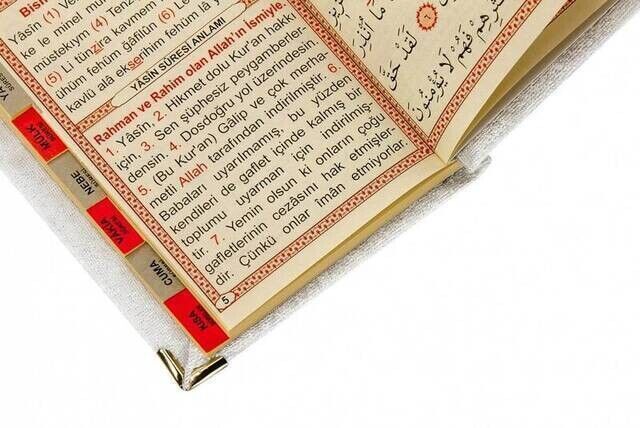 Bism
Yâsin (1) V
ke le minel mü
müstekıym (4) Tenz
(5) Li tünzira kavmem
ühüm fehüm ğâfilûn (6) Le
kavlü alâ ekserihim fehüm lâ y
YÂSİN SÛRESİ ANLAMI
Rahman ve Rahim olan Allah'ın ismiyle
1. Yâsin, 2. Hikmet dolu Kur'an hakkı
için. 3. Sen şüphesiz peygamberler-
densin. 4. Dosdoğru yol üzerindesin.
5. (Bu Kur'an) Gâlip ve çok merha-
metli Allah tarafından indirilmiştir. 6.
Babaları uyarılmamış, bu yüzden
kendileri de gaflet içinde kalmış bir
toplumu uyarman için indirilmiş-
tir. 7. Yemin olsun ki onların çoğu
gafletlerinin cezâsını hak etmişler-
dir. Çünkü onlar îmân etmiyorlar.
5
لَقَدْ حَقَّ
فَهُمْ لَا يُؤْمِنُونَ
MÜLK
NEBE
VAKIA
CUMA
KISA